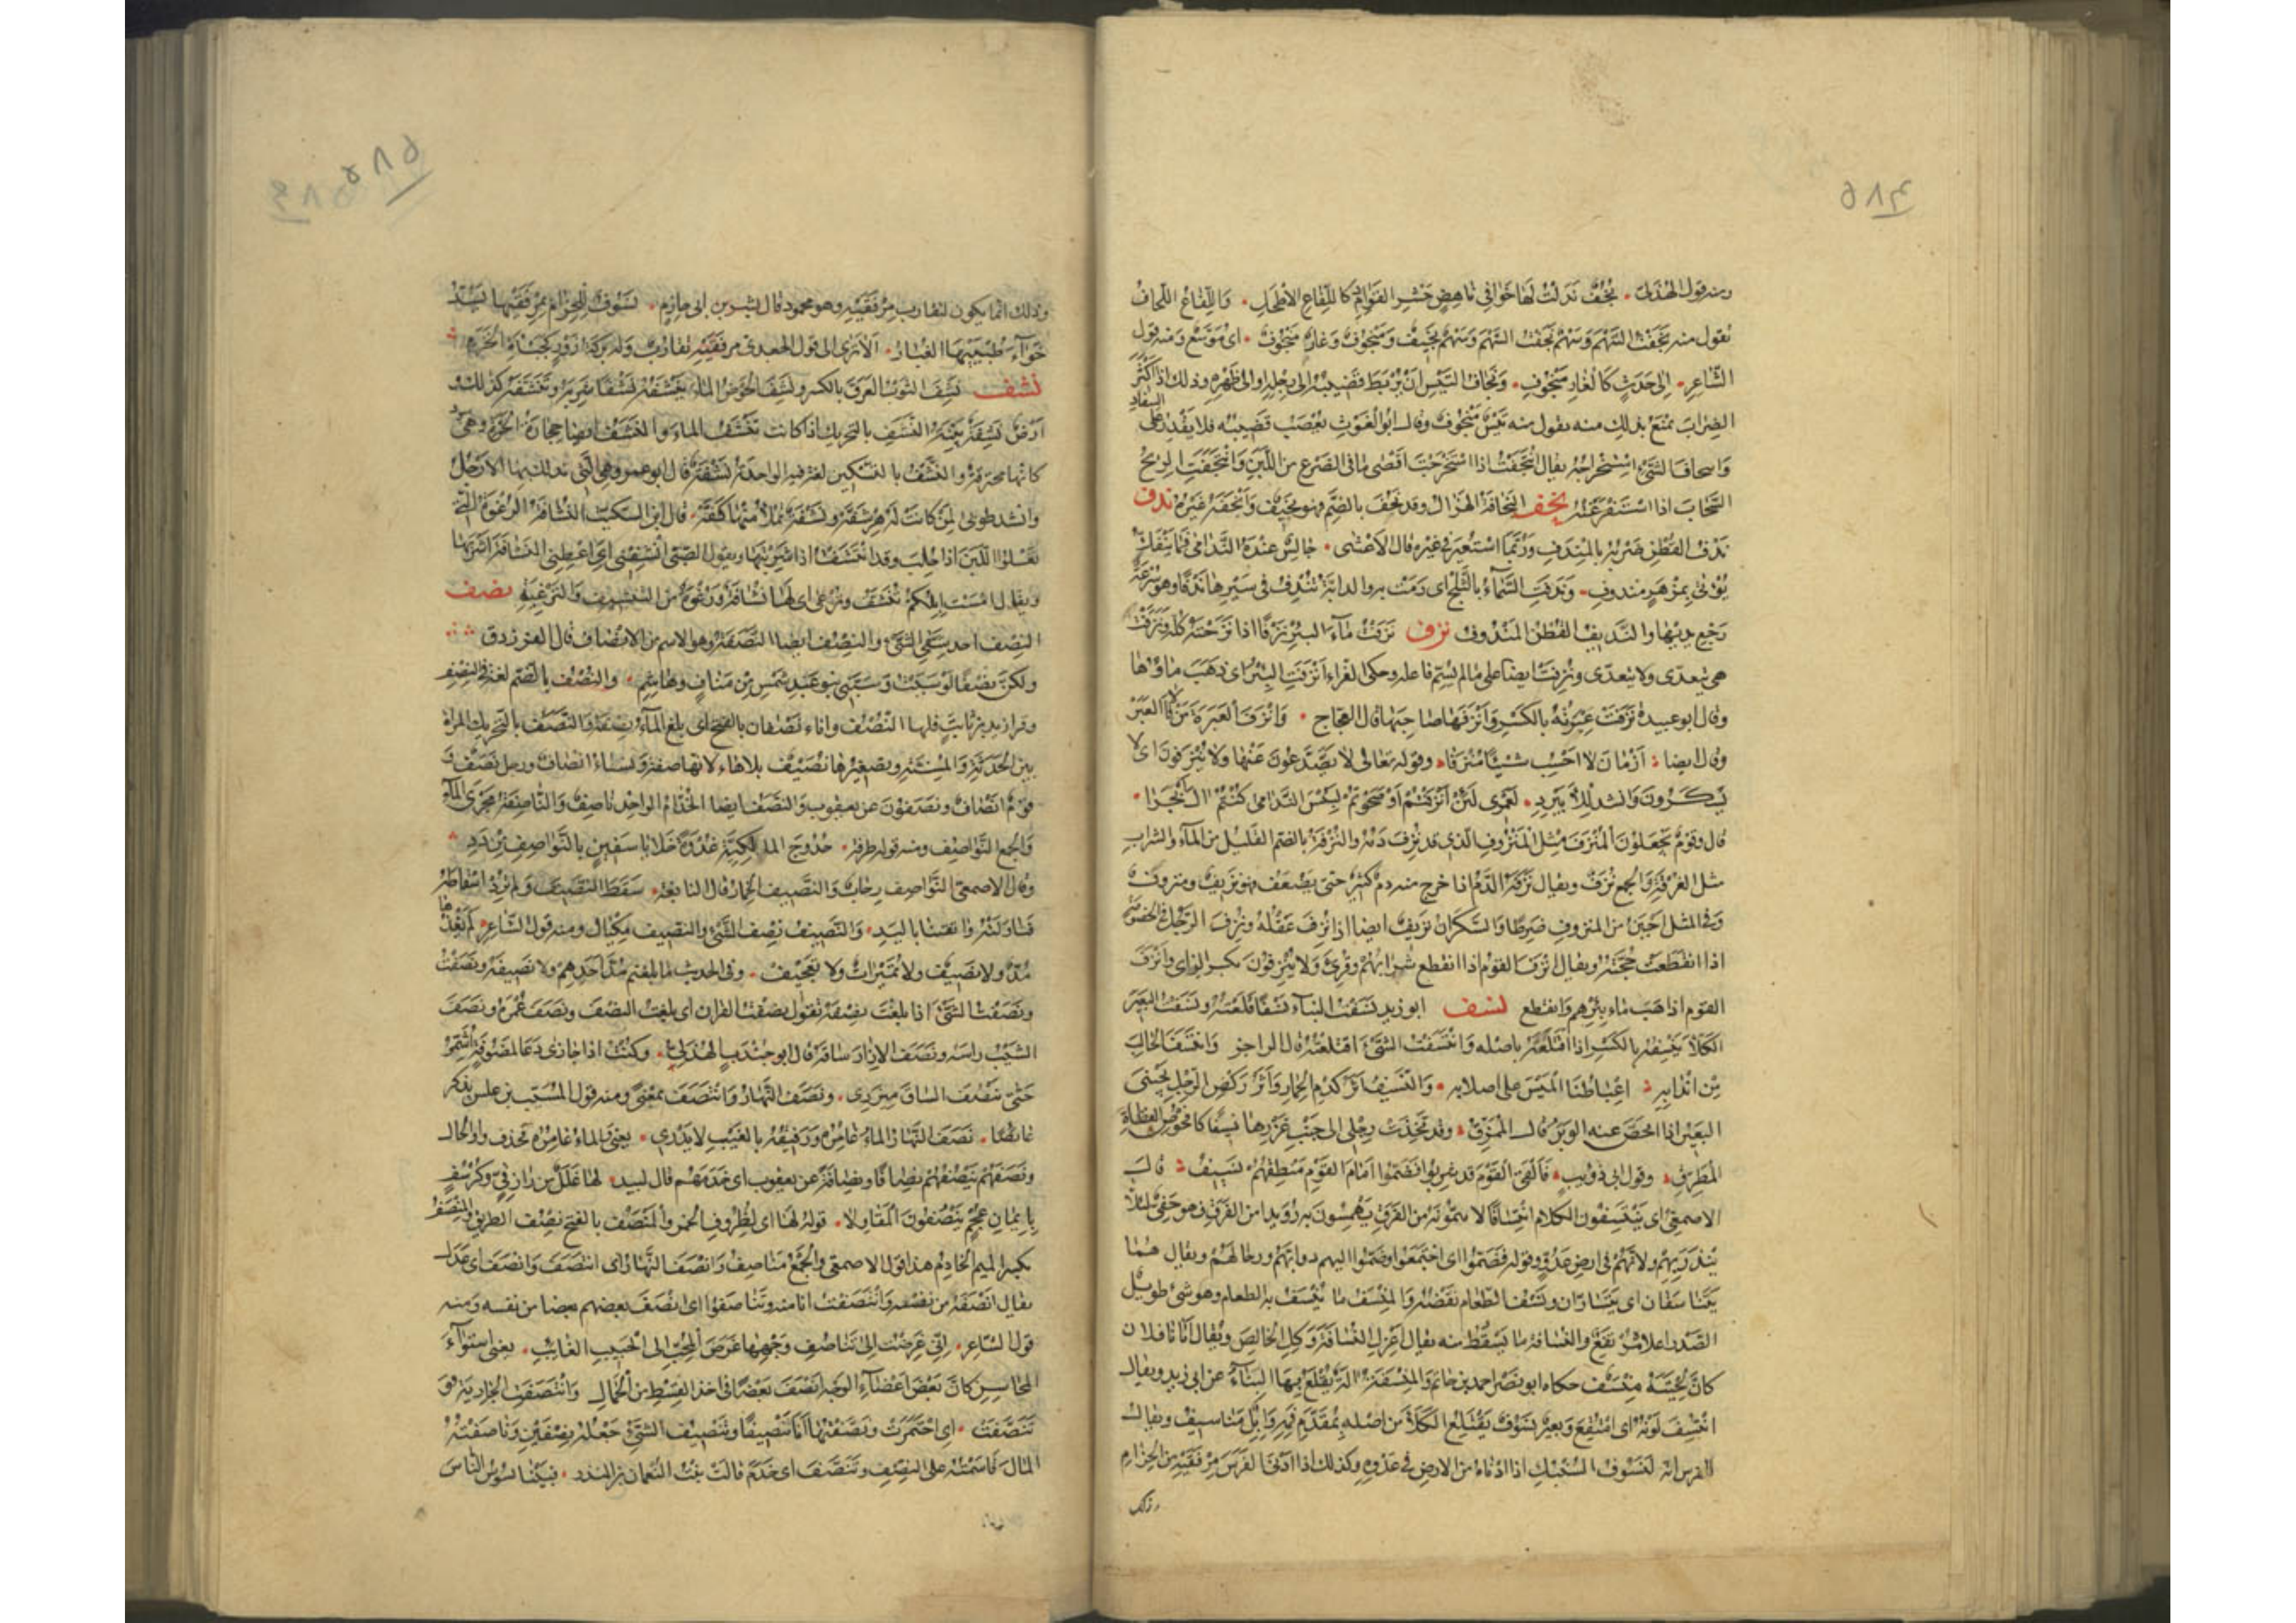 ٥٨٤
ومنه قول الهذلي نُجُفٌ بذلت لها خوافي ناهض حشر القوادم كاللفاع الأطحل واللفاع اللحاف
تقول منه نجفت السهم وسهم نجفت السهم وسهم نجيف ومنجوف وغار منجوف اى موسّع ومنه قول
الشاعر الى جدث كالغار منجوف ونجاف التيس ان يربط قضيبه الى رجله او الى ظهره وذلك اذا اكثر
الضراب يمنع بذلك منه يقول منه تيس منجوف وقال ابو الغوث يعصب قضيبه فلا يقدر على السفاد
الشىء استخراجه يقال انتجفت اذا استخرجت اقصى ما في الضرع من اللبن وانتجفت الريح
السحاب اذا استفرغته نخف النخافة الهزال وقد نخف بالضم فهو نخيف وانخفه غيره ندف
ندف القطن ضربه بالمندف وربما استعير في غيره قال الأعشى جالس عنده الندامى فما ينفكّ
يؤتى بمزهر مندوف وندفت السماء بالثلج اى رمت به والدابة تندف في سيرها ندفا وهو سرعة
رجع يديها والنديف القطن المندوف نزف نزفت ماء البئر نزفا اذا نزحته كله ونزفت
هى يتعدى ولا يتعدى ونزفت ايضا على ما لم يسم فاعله وحكى الفراء انزفت البئر اى ذهب ماؤها
وقال ابو عبيدة نزفت عبرته بالكسر وانزفها صاحبها قال العجاج وانزف العبرة من لاقى العبر
وقال ايضا ازمان لا احسب شيئا منزفا وقوله تعالى لا يصدعون عنها ولا ينزفون اى لا
يسكرون وانشد للأبيرد لعمرى لئن انزفتم او صحوتم لبئس الندامى كنتم ال ابجرا
قال وقوم يجعلون المنزف مثل المنزوف الذى قد نزف دمه والنزفة بالضم القليل من الماء والشراب
مثل الغرفة والجمع نزف ويقال نزفه الدم اذا خرج منه دم كثير حتى يضعف فهو نزيف ومنزوف
وفي المثل اجبن من المنزوف ضرطا والسكران نزيف ايضا اذا نزف عقله ونزف الرجل في الخصومة
اذا انقطعت حجته ويقال انزف القوم اذا انقطع شرابهم وقرئ ولا ينزفون بكسر الزاى وانزف
القوم اذا ذهب ماء بئرهم وانقطع نسف ابو زيد نسفت البناء نسفا قلعته ونسفت البعير
الكلأ ينسفه بالكسر اذا اقتلعه باصله وانتسفت الشىء اقتلعته قال الراجز وانتسف الجالب
من اندابه اغباطنا الميس على اصلابه والنسيف اثر كدم الحمار واثر ركض الرجل بجنبى
البعير اذا انحصّ عنه الوبر قال الممزق وقد تخذت رجلى الى جنب غرزها نسيفا كافحوص القطاة
المطرق وقول ابى ذويب فالفى القوم قد شربوا فضموا امام القوم منطقهم نسيف قال
الاصمعى اى ينتسفون الكلام انتسافا لا يتمونه من الفرق يهمسون به رويدا من الفرق فهو خفى لئلا
ينذر بهم ولانهم فى ارض عدو وقوله فضموا اى اجتمعوا او ضموا اليهم دوابهم ورحالهم ويقال هما
يتناسفان اى يتساران ونسف الطعام نفضه والمنسف ما ينسف به الطعام وهو شىء طويل
الصدر اعلاه مرتفع والنسافة ما يسقط منه يقال اعزل النسافة وكل الخالص ويقال اتانا فلان
كان لحيته منسف حكاه ابو نصر احمد بن حاتم والمنسفة الة يقلع بها البناء عن ابى زيد ويقال
انتسف لونه اى امتقع وبعير نسوف يقتلع الكلأ من اصله بمقدم فيه وابل مناسيف ويقال
الفرس انه لنسوف السنبك اذا ادناه من الارض في عدوه وكذلك اذا ادنى الفرس مرفقيه من الحزام
وذلك
٥٨٥
وذلك انما يكون لتقارب مرفقيه وهو محمود قال بشر بن ابى خازم نسوف للحزام بمرفقيها يسد
خواء طبييها الغبار الا ترى الى قول الجعدى مرفقيه تقارب وله بركة زور كجبأة الخزم
نشف نشف الثوب العرق بالكسر ونشف الحوض الماء ينشفه نشفا شربه وتنشفه كذلك
ارض نشفة بينة النشف بالتحريك اذا كانت تنشف الماء والنشف ايضا حجارة الحرة وهى
كانها محترقة والنشف بالتسكين لغة فيه الواحدة نشفة قال ابو عمرو وهى التى تدلك بها الارجل
وانشد طوبى لمن كانت له هرشفة ونشفة يملأ منها كفه قال ابن السكيت النشافة الرغوة التى
تعلو اللبن اذا حلب وقد انتشفت اذا شربتها ويقول الصبى انشفنى اى اعطنى النشافة اشربها
ويقال امست ابلكم تنشف وترغى اى لها نشافة ورغوة من التنشيف والترغية نصف
النصف احد شقى الشىء والنصف ايضا النصفة وهو الاسم من الانصاف قال الفرزدق
ولكن نصفا لو سببت وسبنى بنو عبد شمس من مناف وهاشم والنصف بالضم لغة فى النصف
وقرأ زيد بن ثابت فلها النصف واناء نصفان بالفتح اى بلغ الماء نصفه والنصف بالتحريك المرأة
بين الحدثة والمسنة وتصغيرها نصيف بلا هاء لانها صفة ونساء انصاف ورجل نصف و
قوم انصاف ونصفون عن يعقوب والنصف ايضا الخدام الواحد ناصف والناصفة مجرى الماء
والجمع النواصف ومنه قول طرفة حدوج المالكية غدوة خلايا سفين بالنواصف من دد
وقال الاصمعى النواصف رحاب والنصيف الخمار قال النابغة سقط النصيف ولم ترد اسقاطه
فتناولته واتقتنا باليد والنصيف نصف الشىء والنصيف مكيال ومنه قول الشاعر لم يغذها
مد ولا نصيف ولا تميرات ولا تعجيف وفي الحديث ما بلغتم مد احدهم ولا نصيفه ونصفت
ونصفت الشىء اذا بلغت نصفه تقول نصفت القران اى بلغت النصف ونصف عمره ونصف
الشيب راسه ونصف الازار ساقه قال ابو جندب الهذلى وكنت اذا جارى دعا لمضوفة اشمر
حتى ينصف الساق مئزرى ونصف النهار وانتصف بمعنى ومنه قول المسيب بن علس يذكر
غائصا نصف النهار الماء غامره ورفيقه بالغيب لا يدرى يعنى والماء غامره فحذف واو الحال
ونصفهم ينصفهم نصافا ونصافة عن يعقوب اى خدمهم قال لبيد لها غلل من رازقى وكرسف
بايمان عجم ينصفون المقاولا قوله لها اى لظروف الخمر والمنصف بالفتح نصف الطريق والمنصف
بكسر الميم الخادم هذا قول الاصمعى والجمع مناصف وانصف النهار اى انتصف وانصف اى عدل
يقال انصفه من نفسه وانتصفت انا منه وتناصفوا اى انصف بعضهم بعضا من نفسه ومنه
قول الشاعر انى غرضت الى تناصف وجهها غرض المحب الى الحبيب الغائب يعنى استواء
المحاسن كان بعض اعضاء الوجه انصف بعضا فى اخذ القسط من الجمال وانتصفت الجارية و
تنصفت اى اختمرت ونصفتها انا تنصيفا وتنصيف الشىء جعله نصفين وناصفته
المال قاسمته على النصف وتنصف اى خدم قالت بنت النعمان بن المنذر فبينا نسوس الناس